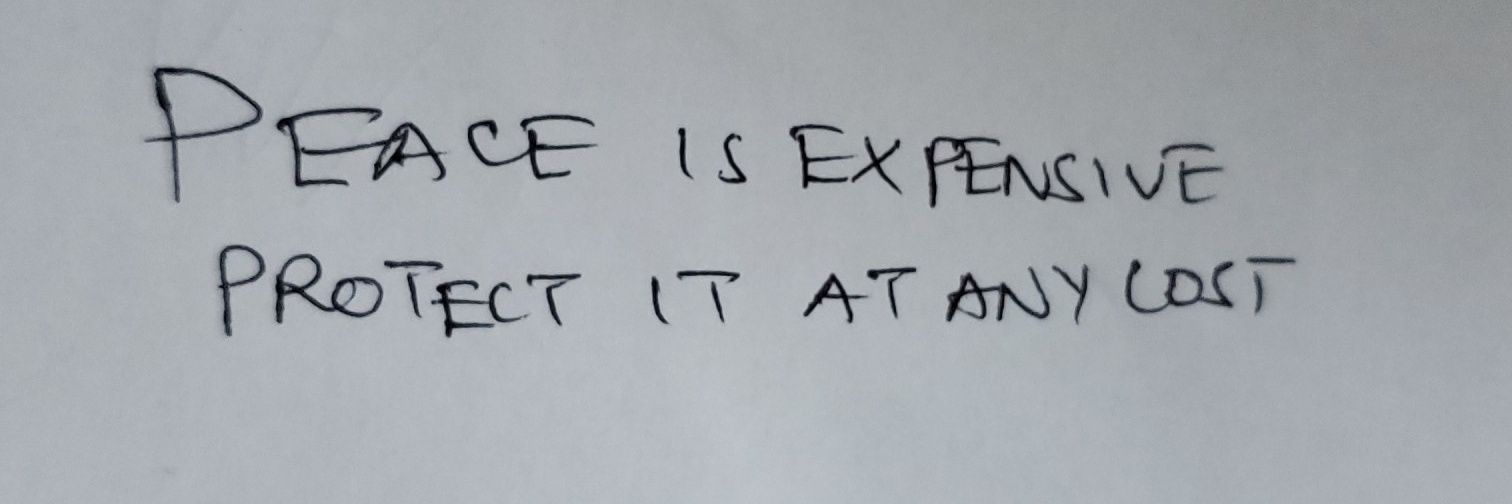 PEACE IS EXPENSIVE
PROTECT IT AT ANY COST